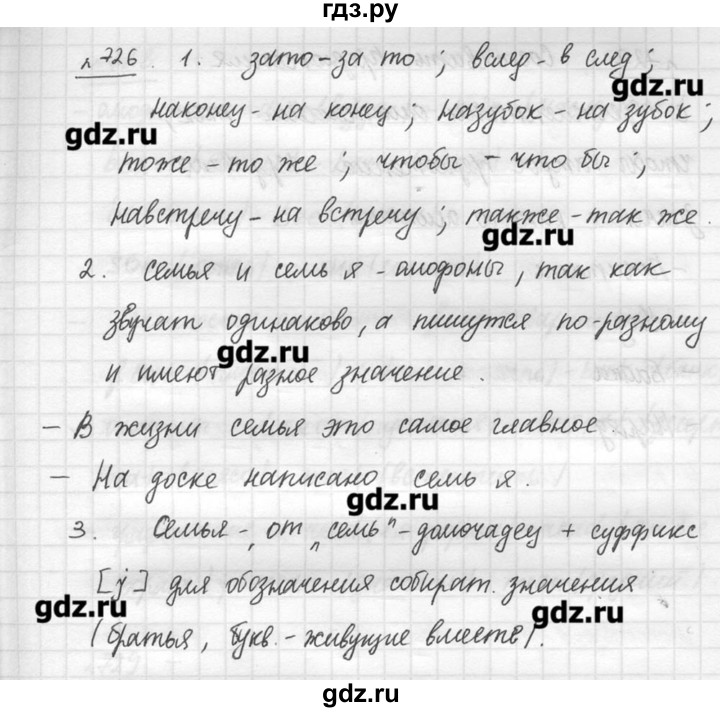 гдз.ру
n 726. 1. зато - за то; вслед - в след;
gdz.ru
наконец - на конец; назубок - на зубок;
gdz.ru
тоже - то же; чтобы - что бы;
навстречу - на встречу; также - так же.
gdz.ru
2. семья и семь я - омофоны, так как
звучат одинаково, а пишутся по-разному
gdz.ru
и имеют разное значение.
- В жизни семья это самое главное.
- На доске написано семь я.
gdz.ru
3. Семья - от „семь" - домочадец + суффикс
[j] для обозначения собират. значения
gdz.ru gdz.ru
(братья, букв. - живущие вместе).
gdz.ru